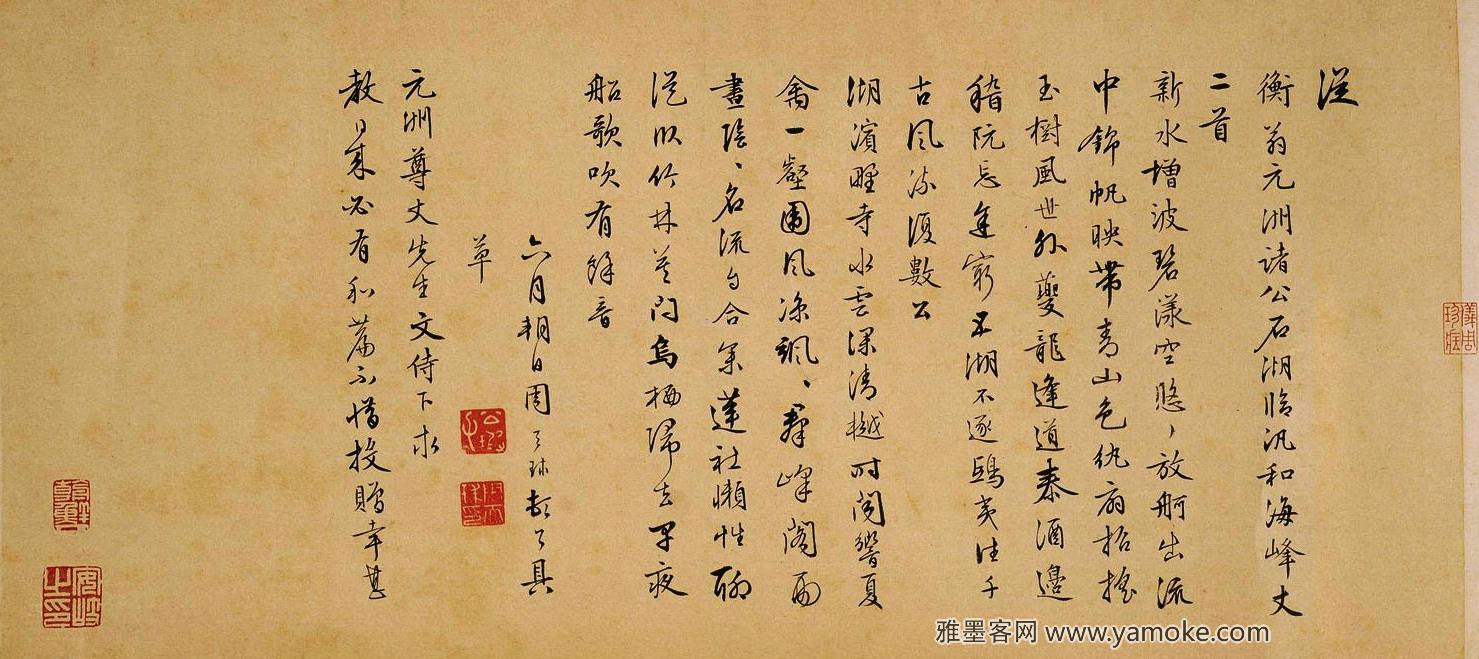 從
衡翁元洲諸公石湖臨汎和海峰丈
二首
新水增波碧漾空悠〻放舸出流
中錦帆映帶青山色紈扇招搖
玉樹風世外夔龍逢道泰酒邊
嵇阮忘途窮五湖不逐鴟夷往千
古風流復數公
湖濱野寺水雲深清樾時聞響夏
禽一壑團風涼颯〻群峰閣雨
晝陰〻名流自合集蓮社懶性聊
從似竹林莫問烏栖歸去早夜
船歌吹有餘音
六月朔日周天球頓首具
草
元洲尊丈先生文侍下求
教日來必有和篇不惜投贈幸甚
儀周珍藏
安岐之印
雅墨客网 www.yamoke.com